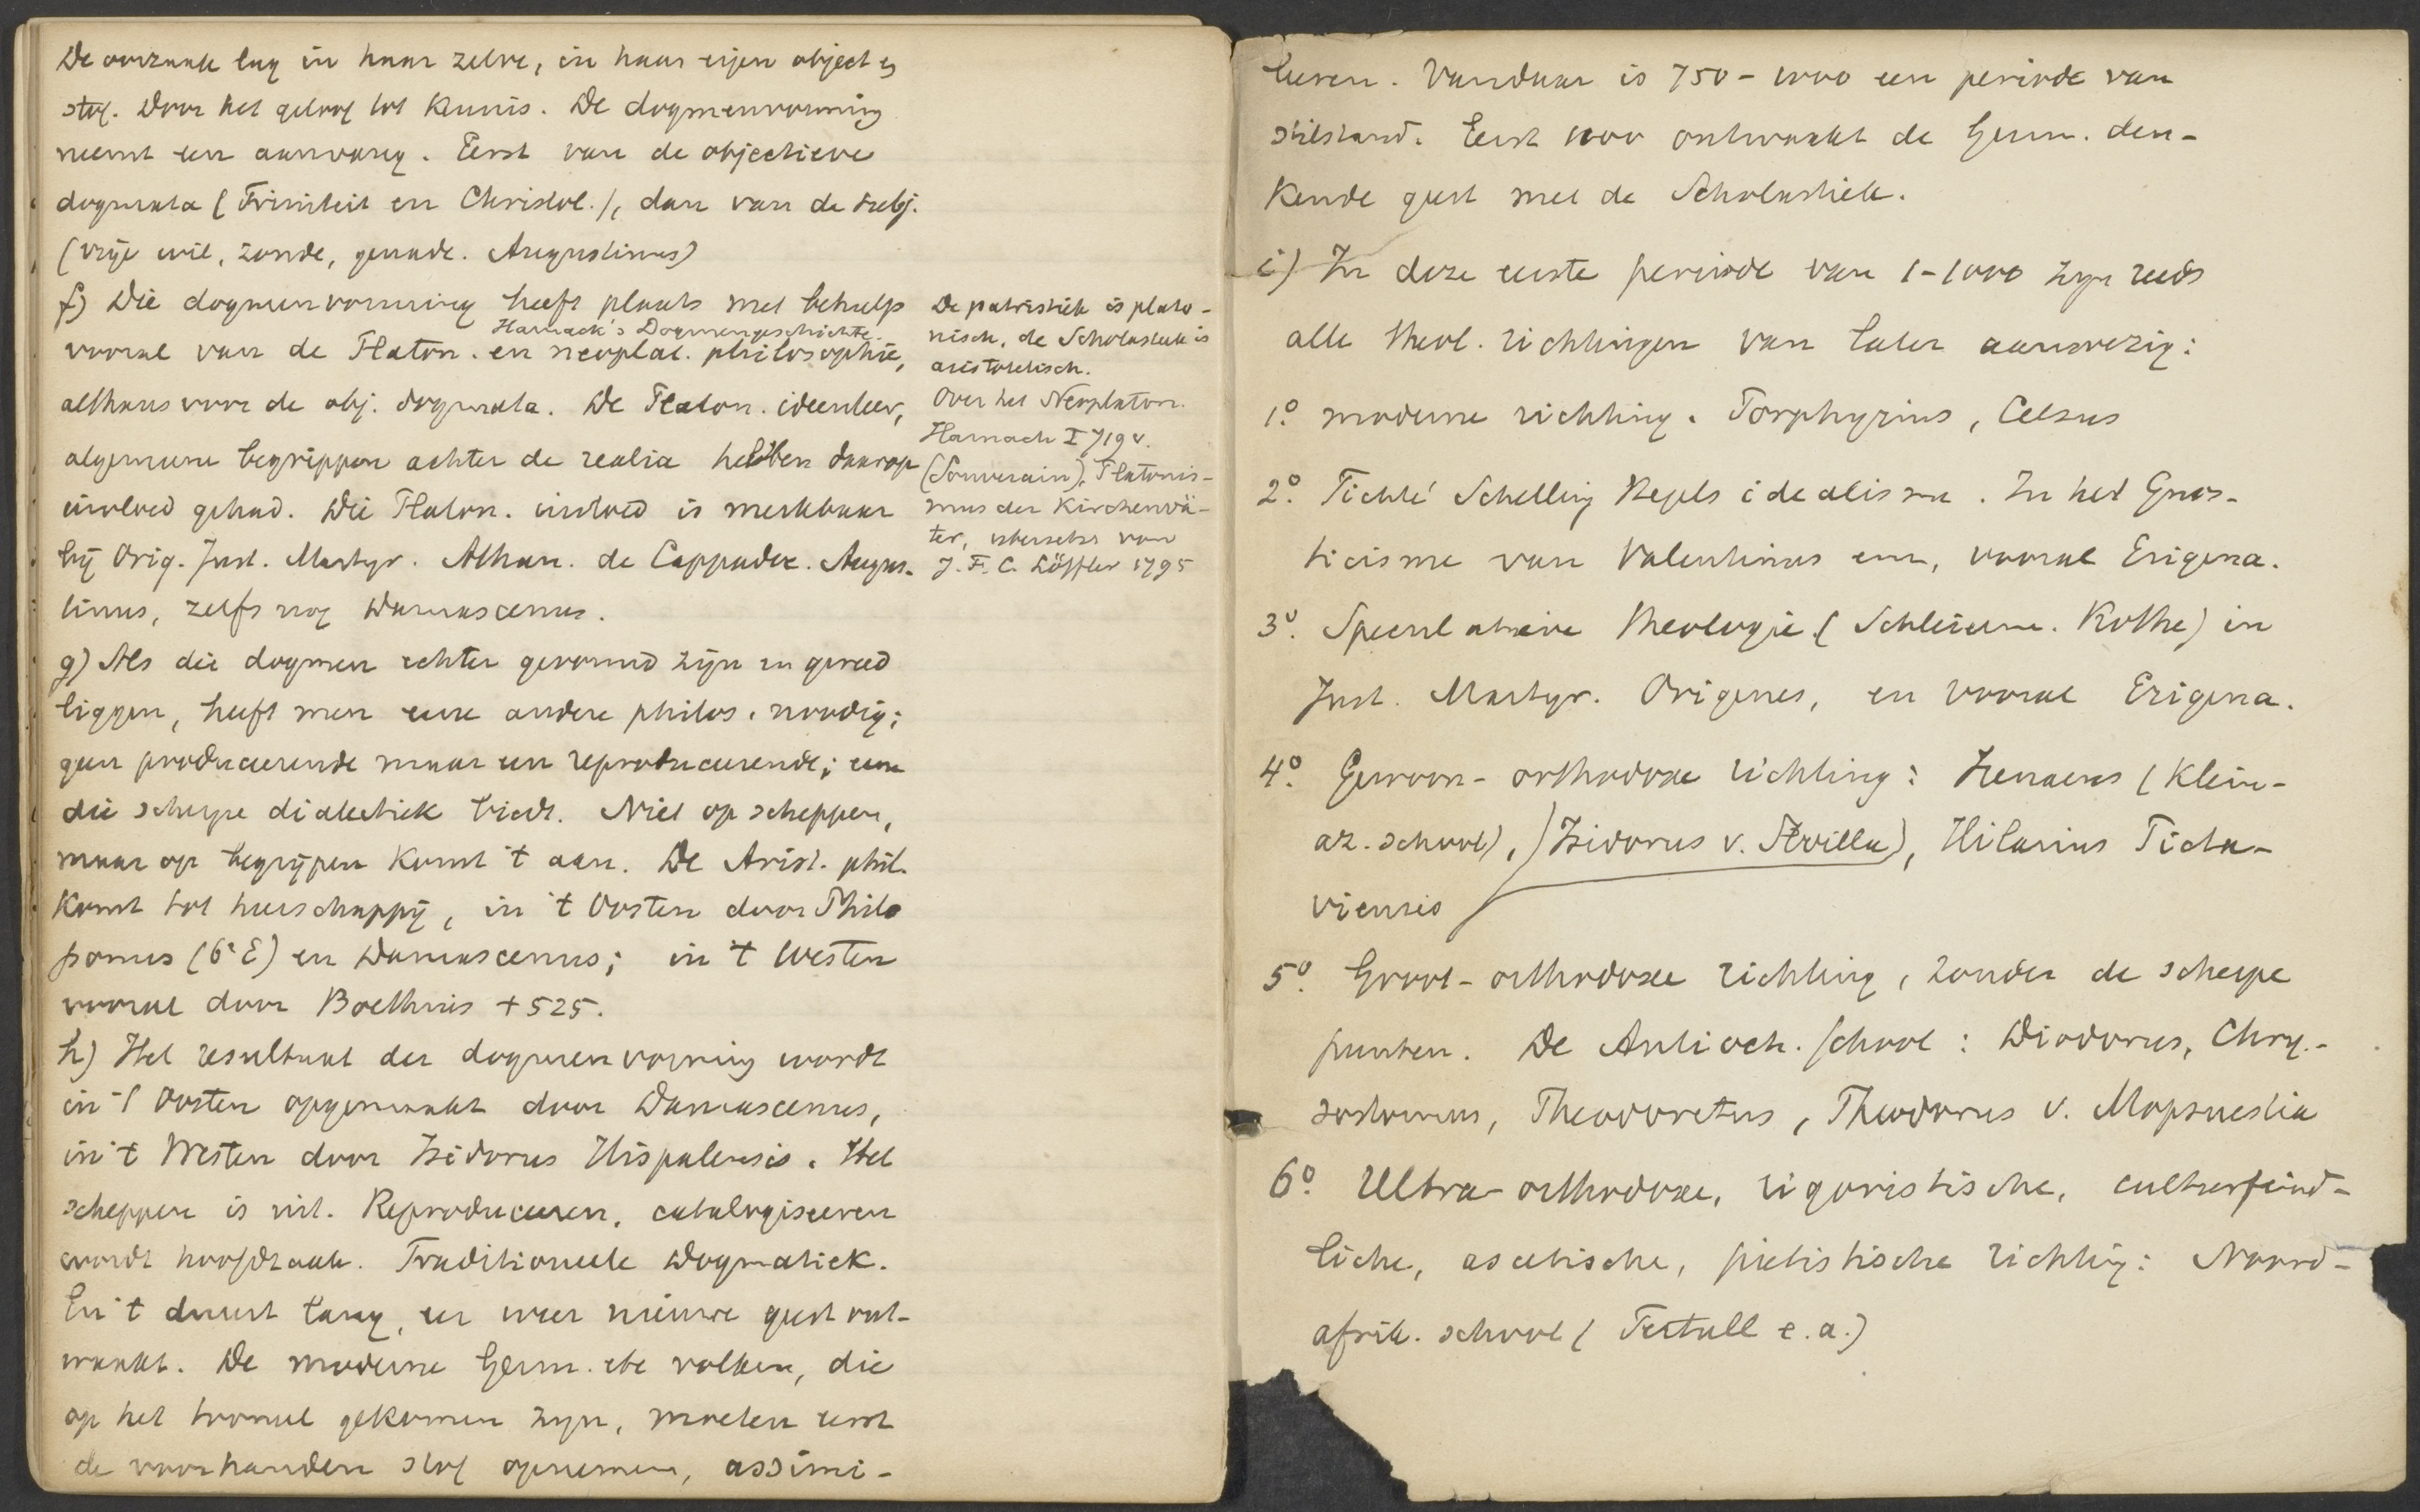 De oorzaak lag in haar zelve, in haar eigen object en
stof. Door het geloof tot kennis. De dogmenvorming
neemt een aanvang. Eerst van de objectieve
dogmata (Triniteit en Christol.), dan van de subj.
(vrije wil, zonde, genade. Augustinus)
f) Die dogmenvorming heeft plaats met behulp
Harnack's Dogmengeschichte.
vooral van de Platon. en neoplat. philosophie,
althans voor de obj. dogmata. De Platon. ideenleer,
algemeene begrippen achter de realia hebben daarop
invloed gehad. Die Platon. invloed is merkbaar
bij Orig. Just. Martyr. Athan. de Cappadoc. Augus-
tinus, zelfs nog Damascenus.
g) Als die dogmen echter gevormd zijn en gereed
liggen, heeft men eene andere philos. noodig;
geen produceerende maar een reproduceerende; eene
die scherpe dialectiek biedt. Niet op scheppen,
maar op begrijpen komt 't aan. De Arist. phil.
komt tot heerschappij, in 't Oosten door Philo
ponus (6e E) en Damascenus; in 't Westen
vooral door Boethius +525.
h) Het resultaat der dogmenvorming wordt
in 't Oosten opgemaakt door Damascenus,
in 't Westen door Isidorus Hispalensis. Het
scheppen is uit. Reproduceeren, catalogiseeren
wordt hoofdzaak. Traditioneele Dogmatiek.
En 't duurt lang, eer weer nieuwe geest ont-
waakt. De moderne Germ. volken, die
op het tooneel gekomen zijn, moeten eerst
de voorhanden stof opnemen, assimi-
De patristiek is plato-
nisch, de Scholastiek is
aristotelisch.
Over het Neoplaton.
Harnack I 719 v.
(Souverain), Platonis-
mus der Kirchenvä-
ter, übersetzt von
J. F. C. Löffler 1795
leeren. Vandaar is 750-1000 een periode van
stilstand. Eerst 1000 ontwaakt de Germ. den-
kende geest met de Scholastiek.
i) In deze eerste periode van 1-1000 zijn reeds
alle theol. richtingen van later aanwezig:
1o. moderne richting. Porphyrius, Celsus
2o. Fichte Schelling Hegels idealisme. In het Gnos-
ticisme van Valentinus enz, vooral Erigena.
3o. Speculatieve theologie (Schleierm. Rothe) in
Just. Martyr. Origenes, en vooral Erigena.
4o. Gewoon-orthodoxe richting: Irenaeus (Klein-
az. school), (Isidorus v. Sevilla), Hilarius Picta-
viensis
5o. Groot-orthodoxe richting, zonder de scherpe
punten. De Antioch. school: Diodorus, Chry-
sostomus, Theodoretus, Theodorus v. Mopsuestia
6o. Ultra-orthodoxe, rigoristische, culturfeind-
liche, ascetische, piëtistische richting: Noord-
afrik. school (Tertull e.a.)